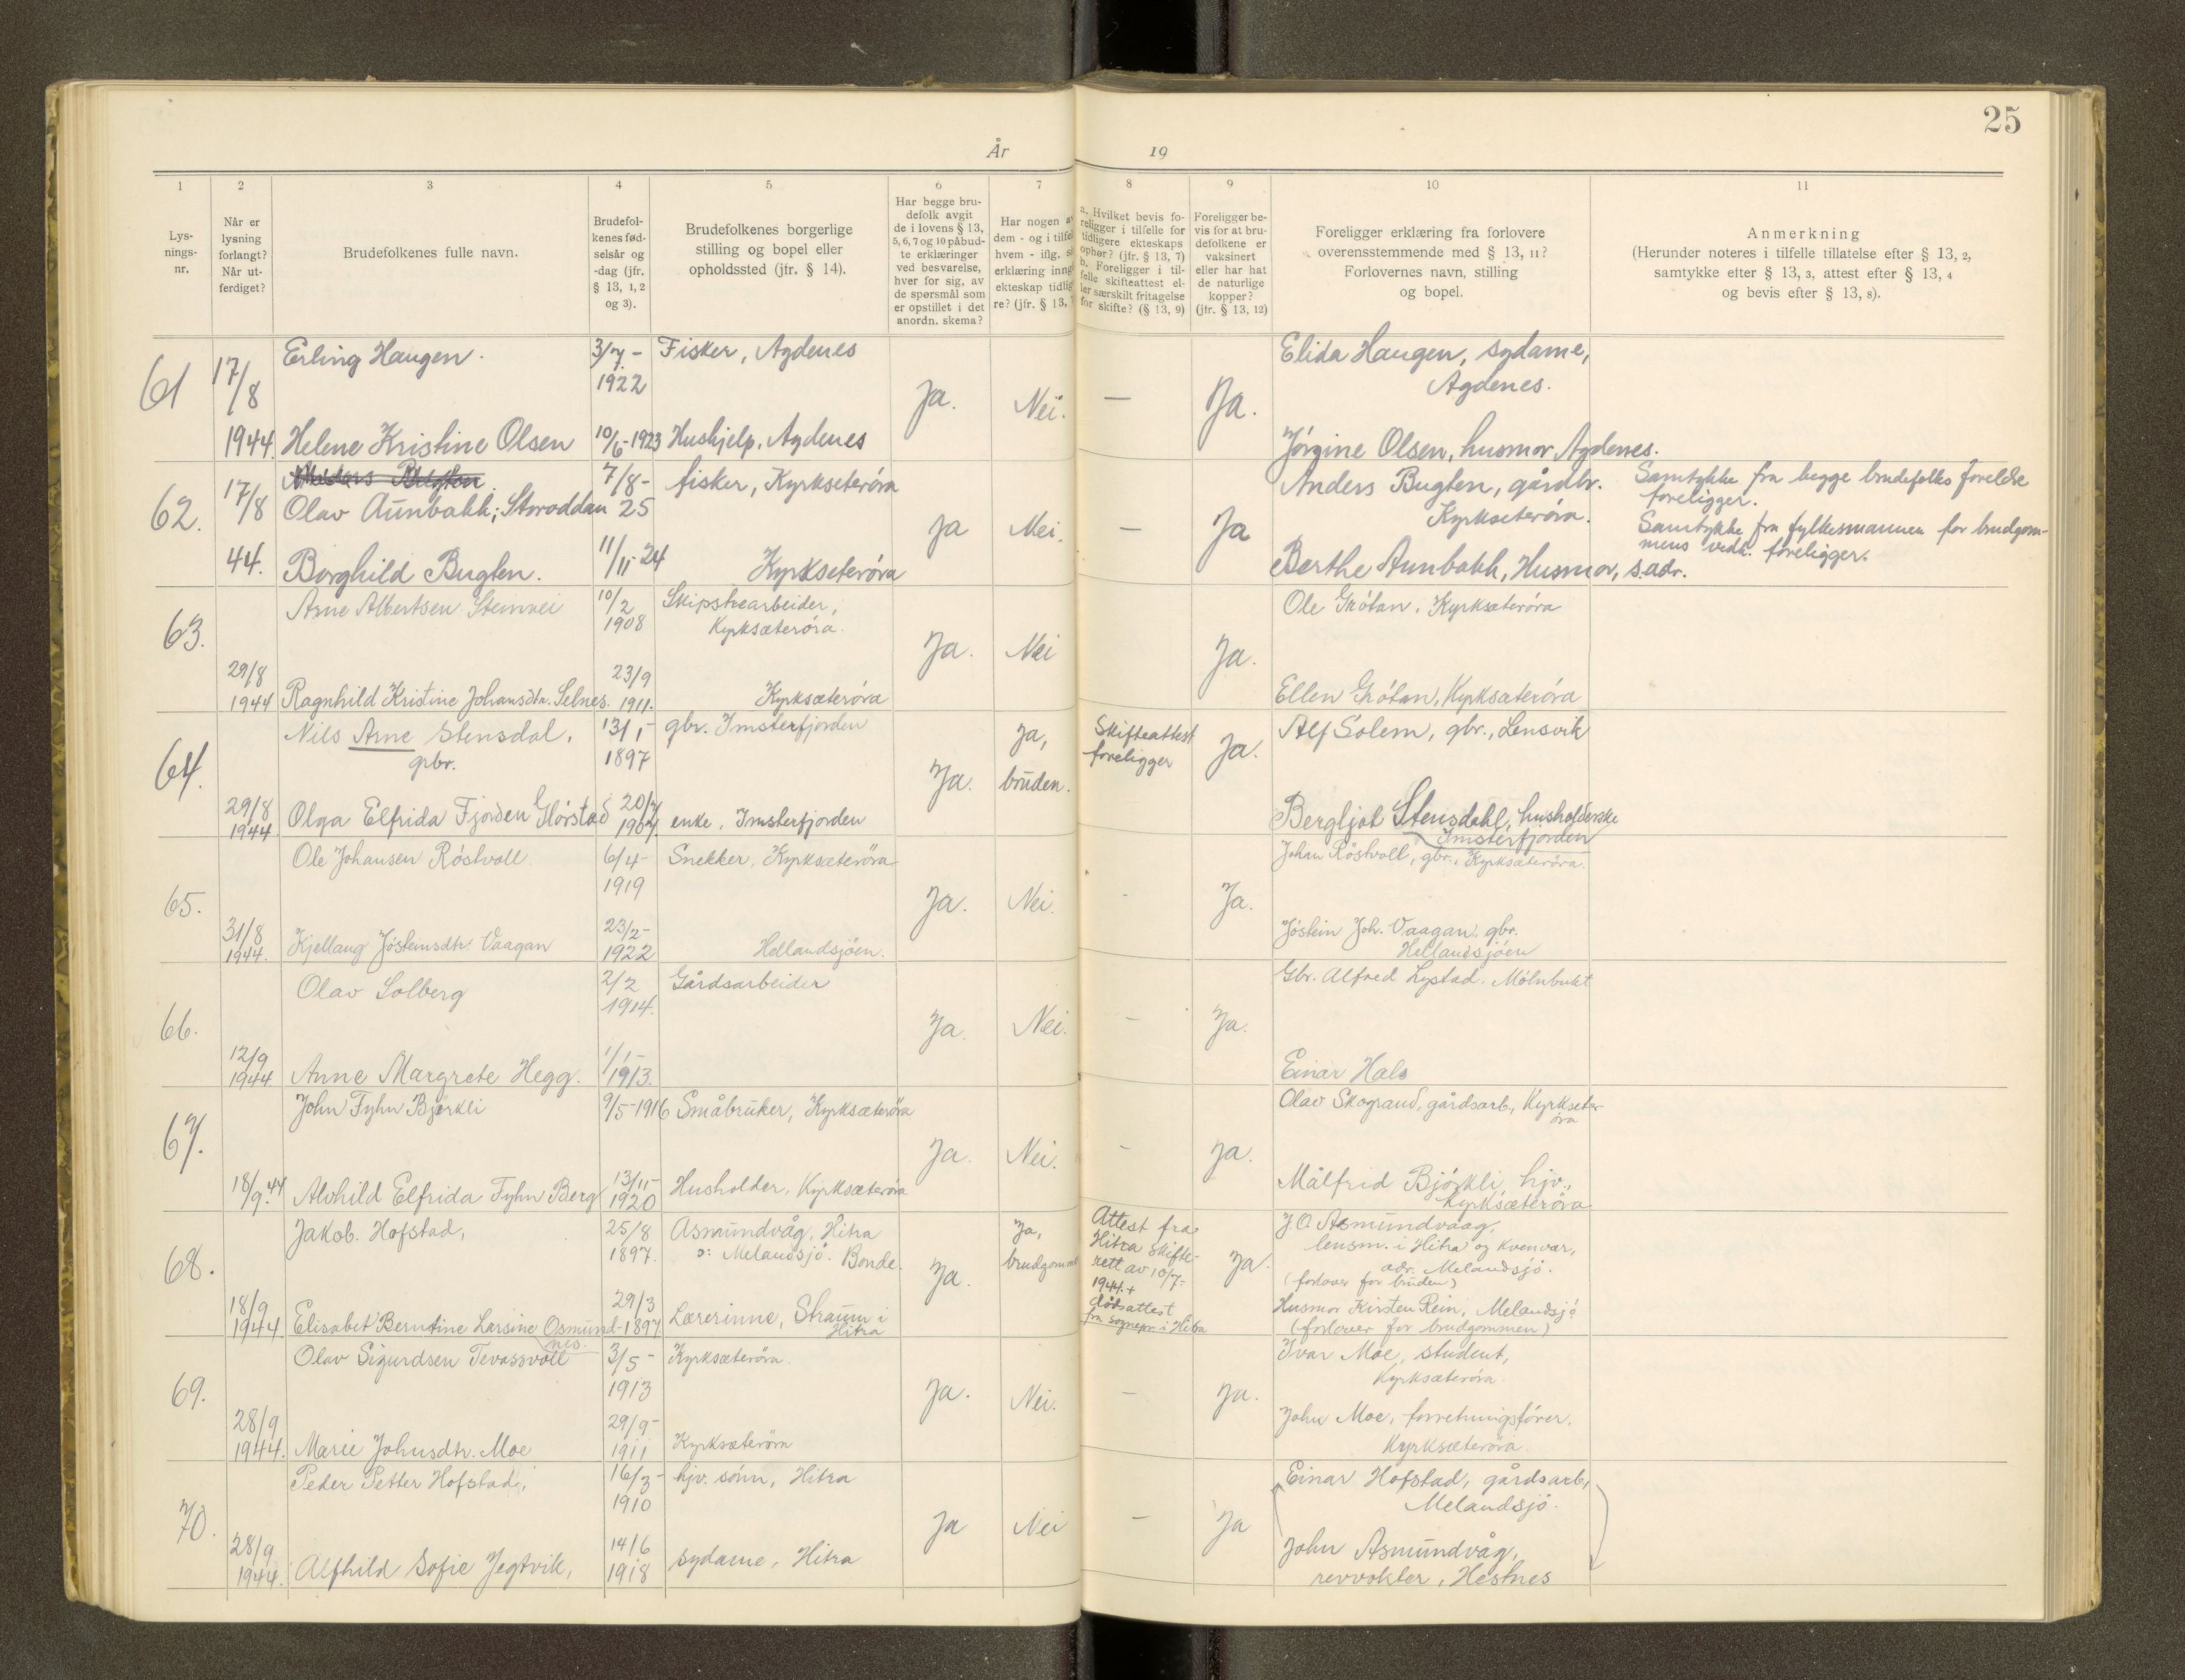 25
År 19
1 2 3 4 5 6 7 8 9 10 11
Lys-
nings-
nr.
Når er
lysning
forlangt?
Når ut-
ferdiget?
Brudefolkenes fulle navn.
Brudefol-
kenes fød-
selsår og
-dag (jfr.
§ 13, 1, 2
og 3).
Brudefolkenes borgerlige
stilling og bopel eller
opholdssted (jfr. § 14).
Har begge bru-
defolk avgit
de i lovens § 13,
5, 6, 7 og 10 påbud-
te erklæringer
ved besvarelse,
hver for sig, av
de spørsmål som
er opstillet i det
anordn. skema?
Har nogen a
dem - og i tilfe
hvem - iflg.
erklæring inng
ekteskap tidlig
re? (jfr. § 13,
a. Hvilket bevis fo-
religger i tilfelle for
tidligere ekteskaps
ophør? (jfr. § 13, 7)
b. Foreligger i til-
felle skifteattest el-
ler særskilt fritagelse
for skifte? (§ 13, 9)
Foreligger be-
vis for at bru-
defolkene er
vaksinert
eller har hat
de naturlige
kopper?
(jfr. § 13, 12)
Foreligger erklæring fra forlovere
overensstemmende med § 13, 11?
Forlovernes navn, stilling
og bopel.
Anmerkning
(Herunder noteres i tilfelle tillatelse efter § 13, 2,
samtykke efter § 13, 3, attest efter § 13, 4
og bevis efter § 13, 8).
61
17/8
1944
Erling Haugen.
3/7 -
1922
Fisker, Agdenes
Helene Kristine Olsen
10/6-1923
Hushjelp, Agdenes
Ja.
Nei.
—
Ja.
Elida Haugen, sydame,
Agdenes.
Jörgine Olsen, husmor Agdenes.
62.
17/8
44.
Olav Aunbakk; Storoddan
7/8-
25
fisker, Kyrkseteröra
Borghild Bugten.
11/11-24
Kyrkseteröra
Ja
Nei.
—
Ja
Anders Bugten, gårdbr.
Kyrkseteröra.
Berthe Aunbakk, Husmor, s.adr.
Samtykke fra begge brudefolks foreldre
foreligger.
Samtykke fra fylkesmannen for brudgom-
mens vedk. foreligger.
63.
29/8
1944
Arne Albertsen Steinvei
10/2
1908
Skipstrearbeider,
Kyrksæteröra.
Ragnhild Kristine Johansdtr. Selnes.
23/9
1911.
Kyrksæteröra
Ja.
Nei
Ja.
Ole Grötan, Kyrksæteröra
Ellen Grötan, Kyrksæteröra
64.
29/8
1944
Nils Arne Stensdal,
gbr.
13/1-
1897
gbr. Imsterfjorden
Olga Elfrida Fjorden Glörstad
20/7
1907.
enke, Imsterfjorden
Ja.
Ja,
bruden.
Skifteattest
foreligger
Ja.
Alf Solem, gbr., Lensvik
Bergljot Stensdahl, husholderske
Imsterfjorden
65.
31/8
1944.
Ole Johansen Röstvoll
6/4-
1919
Snekker, Kyrksæteröra
Kjellaug Jösteinsdtr. Vaagan
23/2-
1922
Hellandsjöen.
Ja.
Nei.
-
Ja.
Johan Röstvoll, gbr., Kyrksæteröra.
Jöstein Joh. Vaagan, gbr.
Hellandsjöen
66.
12/9
1944
Olav Solberg
2/2
1914.
Gårdsarbeider
Anne Margrete Hegg.
1/1-
1913.
Ja.
Nei.
—
Ja.
Gbr. Alfred Lystad, Mölnbukt
Einar Hals
67.
18/9.44
John Fyhn Bjørkli
9/5-1916
Småbruker, Kyrksæteröra
Alvhild Elfrida Fyhn Berg
13/11-
1920
Husholder, Kyrksæteröra
Ja.
Nei.
-
Ja.
Olav Skogrand, gårdsarb., Kyrkseter-
öra
Målfrid Björkli, hjv.,
Kyrksæteröra
68.
18/9
1944
Jakob. Hofstad,
25/8
1897.
Asmundvåg, Hitra
o: Melandsjö. Bonde.
Elisabet Berntine Larsine Osmund-
nes.
29/3
1897.
Lærerinne, Straum i
Hitra
Ja.
Ja,
brudgomm
Attest fra
Hitra skifte-
rett av 10/7-
1944.+
dödsattest
fra sognepr. i Hitra
Ja.
J O Asmundvaag,
lensm. i Hitra og Kvenvær,
adr. Melandsjö.
(forlover for bruden)
Husmor Kirsten Rein, Melandsjö
(forlover for brudgommen)
69.
28/9
1944.
Olav Sigurdsen Tevassvoll
3/5-
1913
Kyrksæteröra.
Marie Johnsdtr. Moe
29/9-
1911
Kyrksæteröra
Ja.
Nei.
—
Ja.
Ivar Moe, student,
Kyrksæteröra.
John Moe, forretningsförer,
Kyrksæteröra.
70.
28/9
1944.
Peder Petter Hofstad,
16/3-
1910
hjv. sönn, Hitra
Alfhild Sofie Jegtvik,
14/6
1918
sydame, Hitra
Ja
Nei
—
Ja
Einar Hofstad, gårdsarb,
Melandsjö.
John Asmundvåg,
revvokter, Hestnes